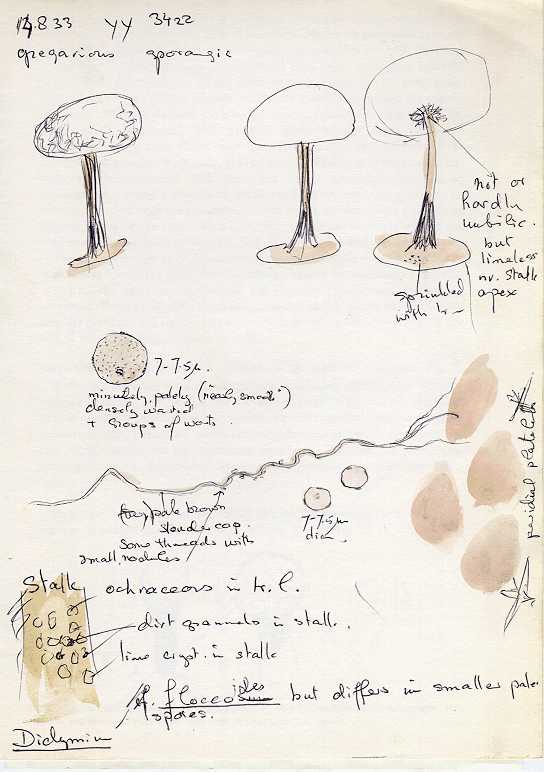 14.833 yy 3422
gregarious sporangia
not or
hardly
umbilic.
but
limeless
nr. stalk
apex
sprinkled
with
7-7.5µ.
minutely, palely (nearly smooth)
densely warted
+ groups of warts.
peridial platelets
pale brown
slender cap.
some threads with
small nodules
7-7.5µ
diam
Stalk ochraceous in tr. l.
dirt granules in stalk.
lime cryst. in stalk
floccoides but differs in smaller paler
spores.
Didymium